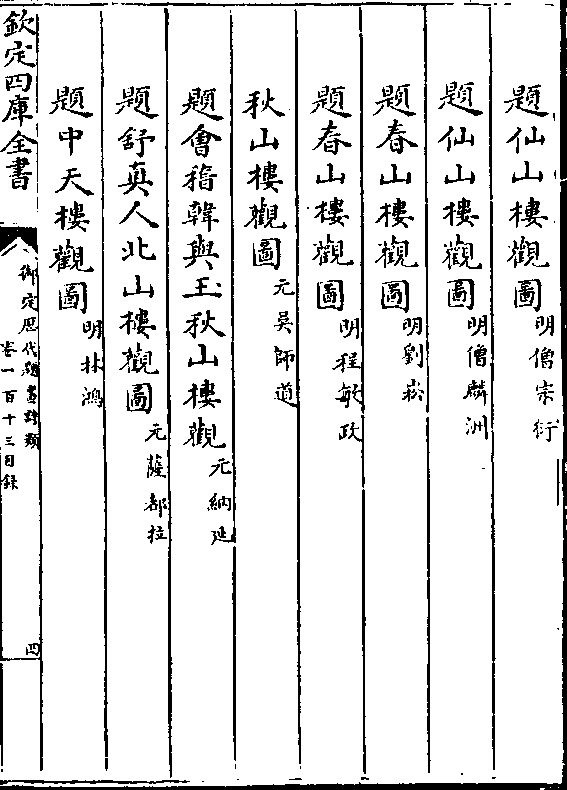 題仙山樓觀圖 明僧宗衍
題仙山樓觀圖 明僧麟洲
題春山樓觀圖 明劉崧
題春山樓觀圖 明程敏政
秋山樓觀圖 元吳師道
題會稽韓與玉秋山樓觀 元納延
題舒真人北山樓觀圖 元薩都拉
題中天樓觀圖 明林鴻
欽定四庫全書
御定歷代題畫詩類
卷一百十三目錄
四